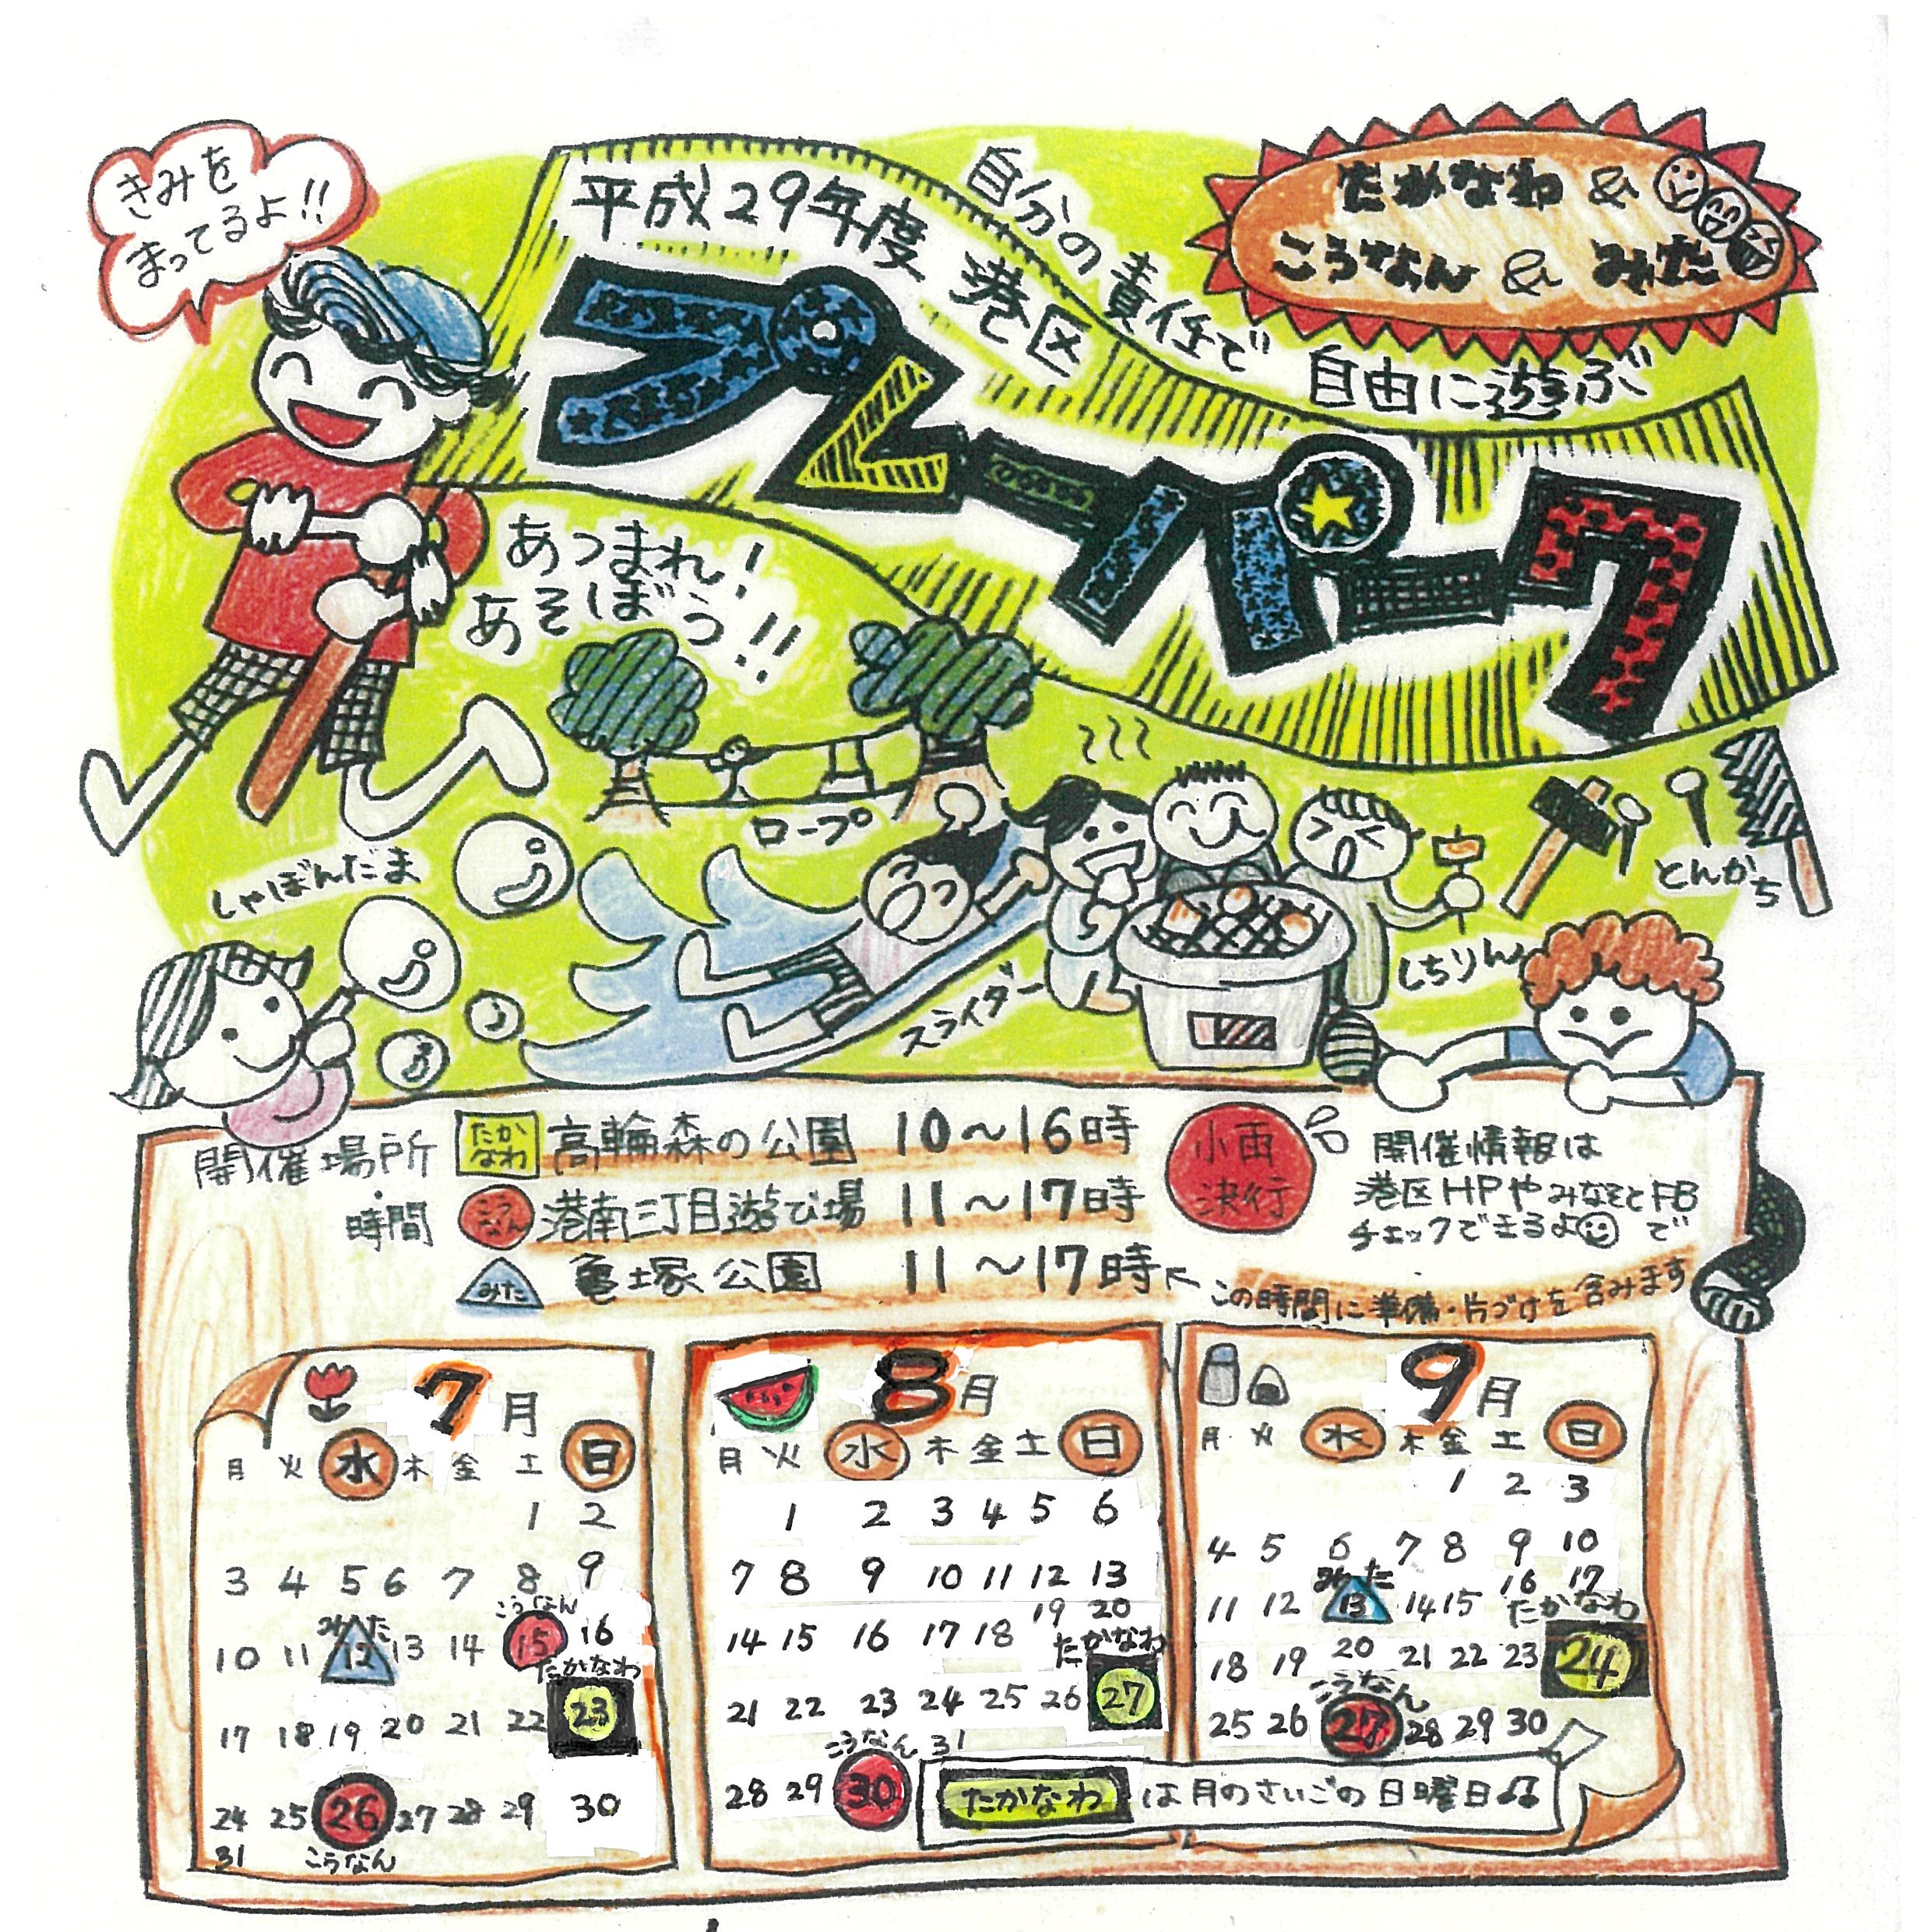 きみを
まってるよ!!
平成29年度 港区
自分の責任で
自由に遊ぶ
たかなわ &
こうなん & みた
プレーパーク
あつまれ!
あそぼう!!
ロープ
しゃぼんだま
スライダー
しちりん
とんかち
開催場所
・
時間
たか
なわ
高輪森の公園 10〜16時
こう
なん
港南三丁目遊び場 11〜17時
みた
亀塚公園 11〜17時
この時間に準備・片づけを含みます
小雨
決行
開催情報は
港区HPやみなそとFB
チェックできるよ で
7月
月 火 水 木 金 土 日
1 2
3 4 5 6 7 8 9
みた こうなん
10 11 12 13 14 15 16
たかなわ
17 18 19 20 21 22 23
24 25 26 27 28 29 30
31 こうなん
8月
月 火 水 木 金 土 日
1 2 3 4 5 6
7 8 9 10 11 12 13
14 15 16 17 18 19 20
たかなわ
21 22 23 24 25 26 27
こうなん
28 29 30 31
9月
月 火 水 木 金 土 日
1 2 3
4 5 6 7 8 9 10
みた
11 12 13 14 15 16 17
たかなわ
18 19 20 21 22 23 24
こうなん
25 26 27 28 29 30
たかなわ は月のさいごの日曜日♫